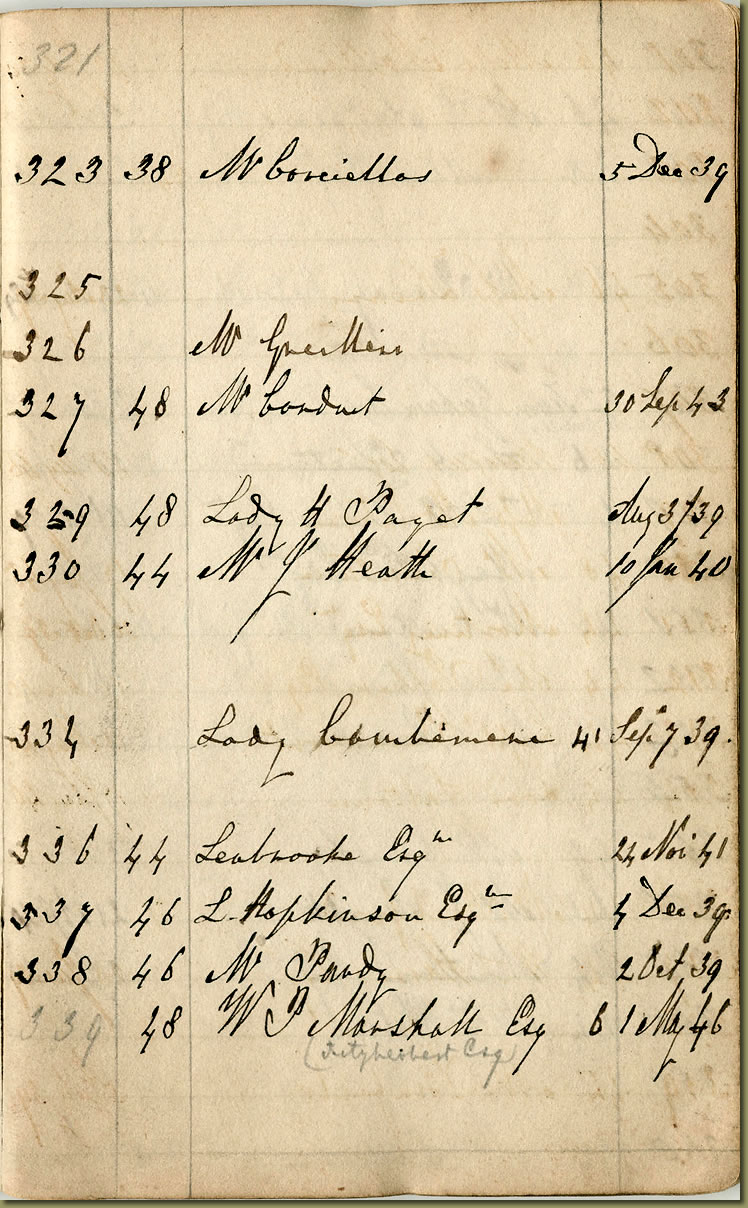 321
323 38 Mr 5 Dec 39
325
326 Mr
327 48 Mr Conduit 30 Sep 43
329 48 Lady H Paget Aug 31 39
330 44 Mr J Heath 10 Jan 40
334 Lady Combermere 41 Sep 7 39
336 44 Esqre 24 Nov 41
337 46 L Hopkinson Esqre 4 Dec 39
338 46 Mr Pardy 2 Oct 39
339 48 W P Marshall Esq 6 1 May 46
(Fitzherbert Esq)